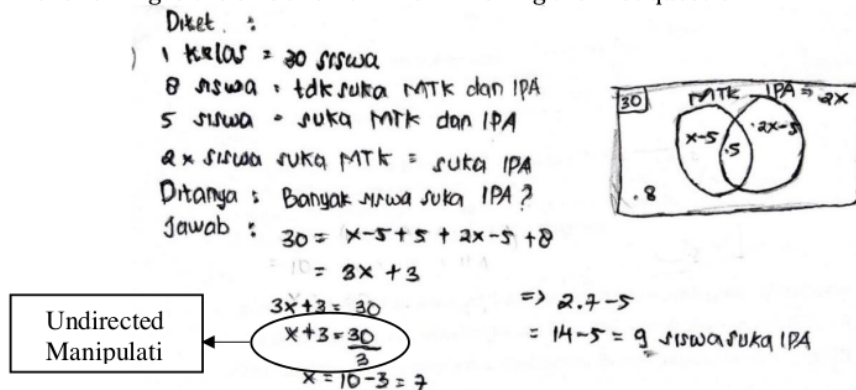 Diket :
) 1 kelas = 30 siswa
8 siswa = tdk suka MTK dan IPA
5 siswa = suka MTK dan IPA
2x siswa suka MTK = suka IPA
Ditanya : Banyak siswa suka IPA ?
Jawab : 30 = x-5+5+2x-5+8
= 3x+3
3x+3 = 30
x+3 = 30/3
x = 10-3 = 7
=> 2.7-5
= 14-5 = 9 siswa suka IPA
30
MTK IPA => 2x
x-5 .5 .2x-5
.8
Undirected
Manipulati